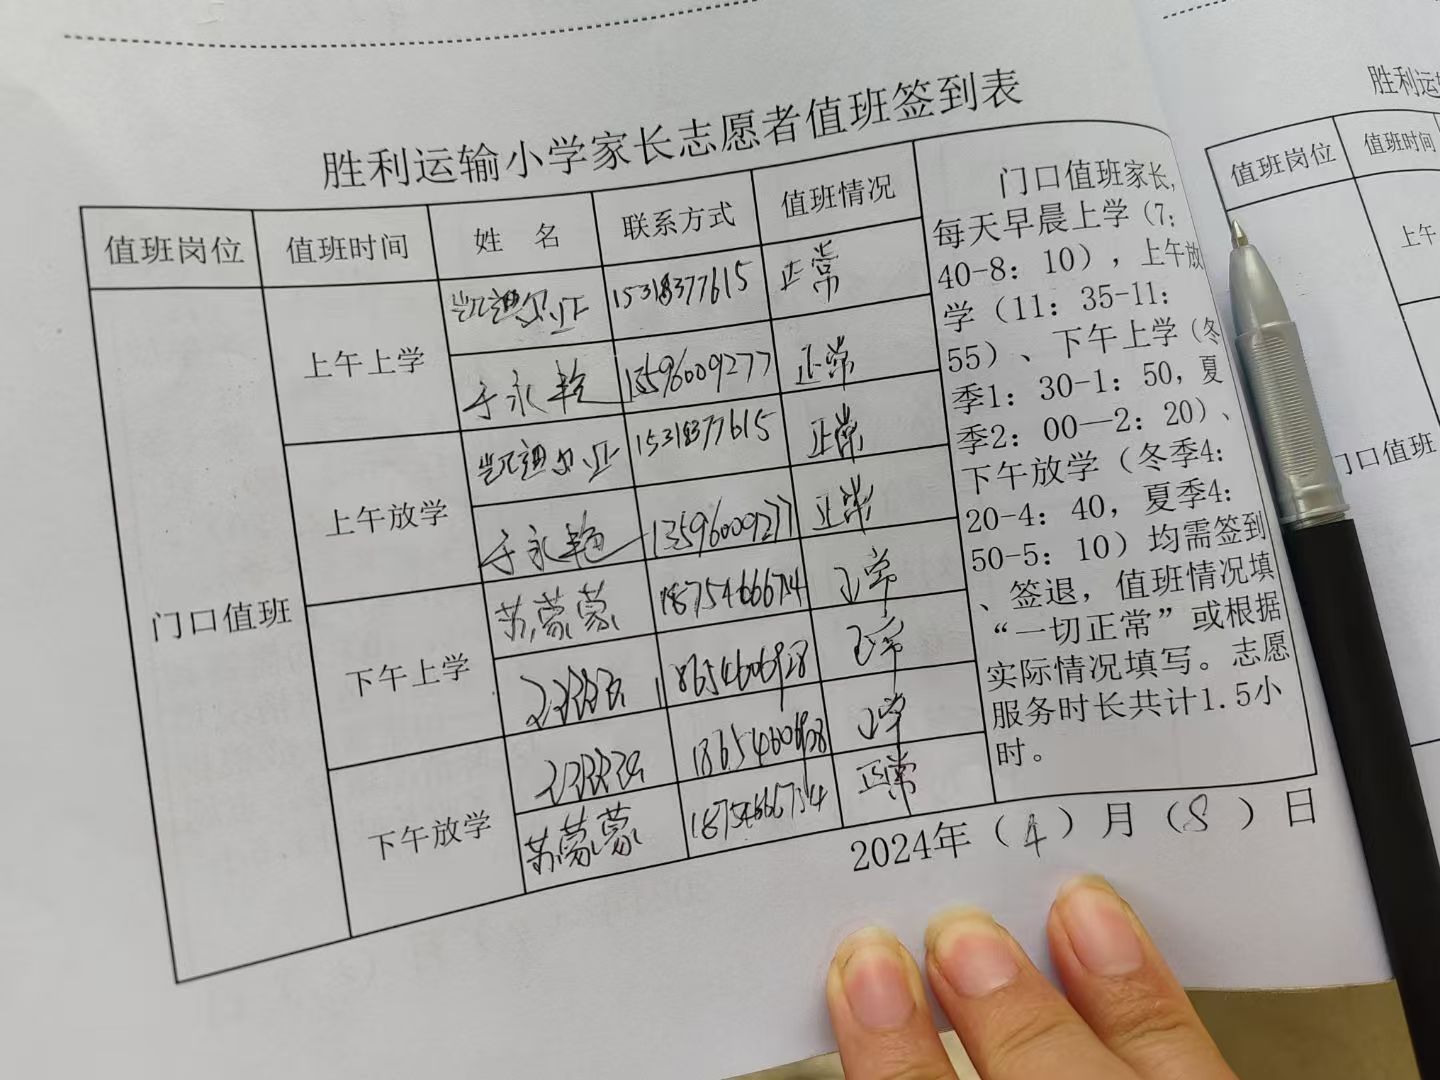 胜利运输小学家长志愿者值班签到表
值班岗位 值班时间 姓 名 联系方式 值班情况
门口值班
上午上学
凯迪尔亚 15318377615 正常
于永艳 13596009277 正常
上午放学
凯迪尔亚 15318377615 正常
于永艳 13596009277 正常
下午上学
苏蒙蒙 18754666714 正常
18654606928 正常
下午放学
18654606928 正常
苏蒙蒙 18754666714 正常
门口值班家长,
每天早晨上学（7:
40-8: 10）, 上午放
学（11: 35-11:
55）、下午上学（冬
季1: 30-1: 50, 夏
季2: 00—2: 20）、
下午放学（冬季4:
20-4: 40, 夏季4:
50-5: 10）均需签到
、签退, 值班情况填
“一切正常”或根据
实际情况填写。志愿
服务时长共计1.5小
时。
2024年（4）月（8）日
胜利运
值班岗位 值班时间
上午
门口值班